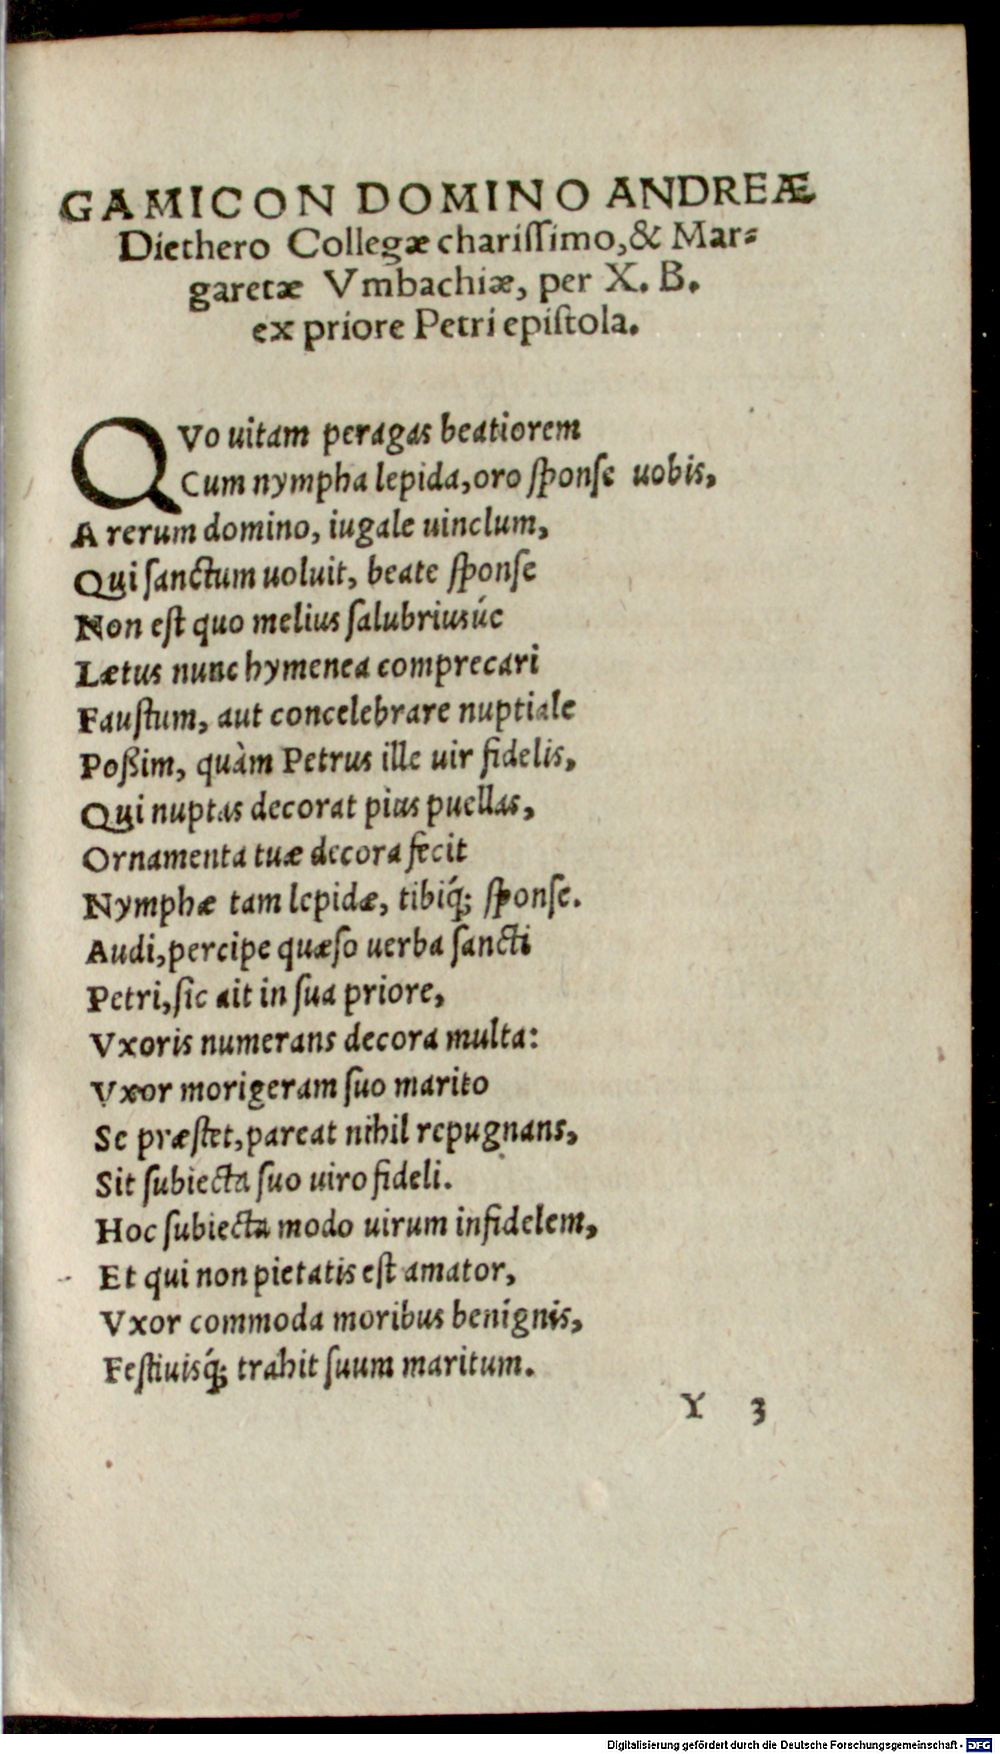 GAMICON DOMINO ANDREÆ
Diethero Collegæ chariſſimo, & Mar⸗
garetæ Vmbachiæ, per X. B.
ex priore Petri epiſtola.
QVo uitam peragas beatiorem
Cum nympha lepida, oro ſponſe uobis,
A rerum domino, iugale uinclum,
Qui ſanctum uoluit, beate ſponſe
Non eſt quo melius ſalubriusúe
Lætus nunc hymenea comprecari
Fauſtum, aut concelebrare nuptiale
Poßim, quàm Petrus ille uir fidelis,
Qui nuptas decorat pius puellas,
Ornamenta tuæ decora fecit
Nymphæ tam lepidæ, tibiq́; ſponſe.
Audi, percipe quæſo uerba ſancti
Petri, ſic ait in ſua priore,
Vxoris numerans decora multa:
Vxor morigeram ſuo marito
Se præſtet, pareat nihil repugnans,
Sit ſubiecta ſuo uiro fideli.
Hoc ſubiecta modo uirum infidelem,
Et qui non pietatis eſt amator,
Vxor commoda moribus benignis,
Feſtiuisq́; trahit ſuum maritum.
Y 3
Digitalisierung gefördert durch die Deutsche Forschungsgemeinschaft - DFG